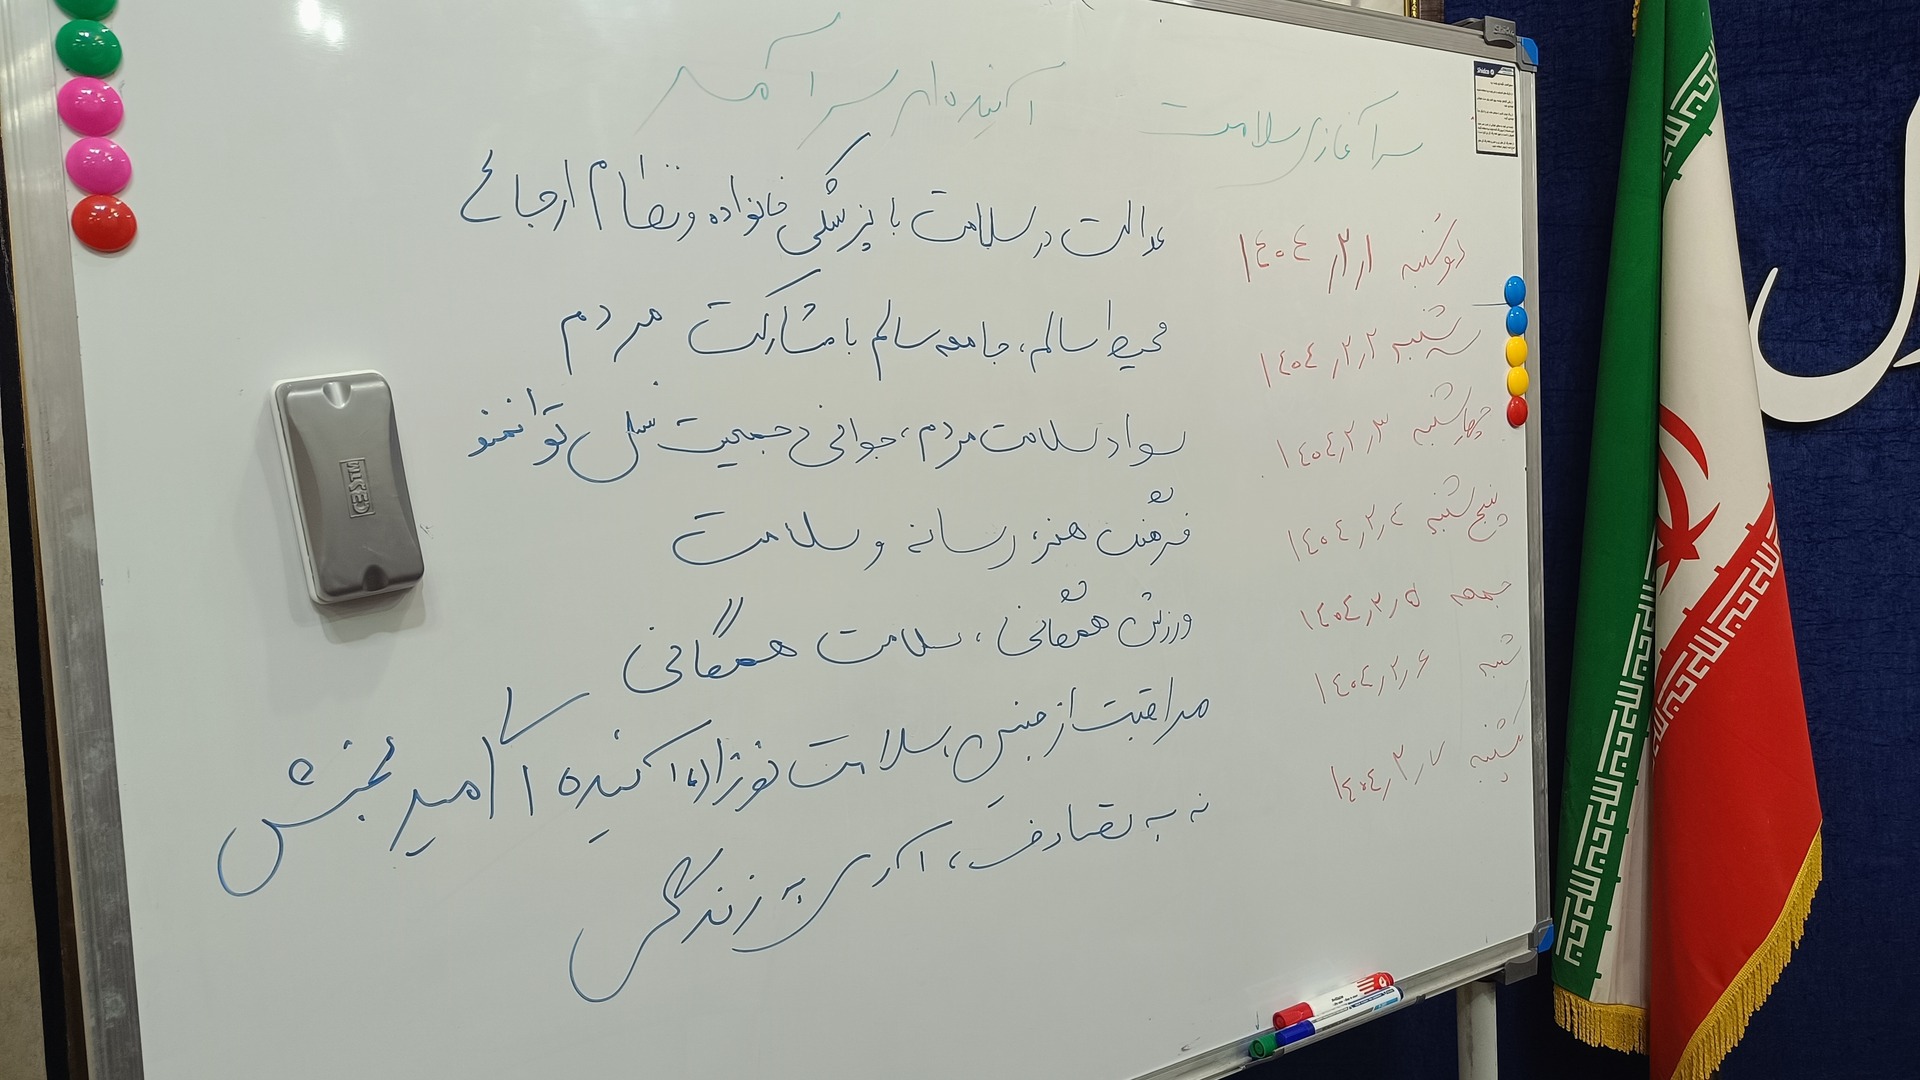 سرآغازی سلامت آینده‌ای سرآمد
دوشنبه ۱۴۰۴/۲/۱ عدالت در سلامت با پزشکی خانواده و نظام ارجاع
سه شنبه ۱۴۰۴/۲/۲ محیط سالم، جامعه سالم با مشارکت مردم
چهارشنبه ۱۴۰۴/۲/۳ سواد سلامت مردم، جوانی جمعیت نسل توانمند
پنج شنبه ۱۴۰۴/۲/۴ فرهنگ هنر، رسانه و سلامت
جمعه ۱۴۰۴/۲/۵ ورزش همگانی، سلامت همگانی
شنبه ۱۴۰۴/۲/۶ مراقبت از جنین، سلامت نوزاد، آینده امید بخش
یکشنبه ۱۴۰۴/۲/۷ نه به تصادف، آری به زندگی